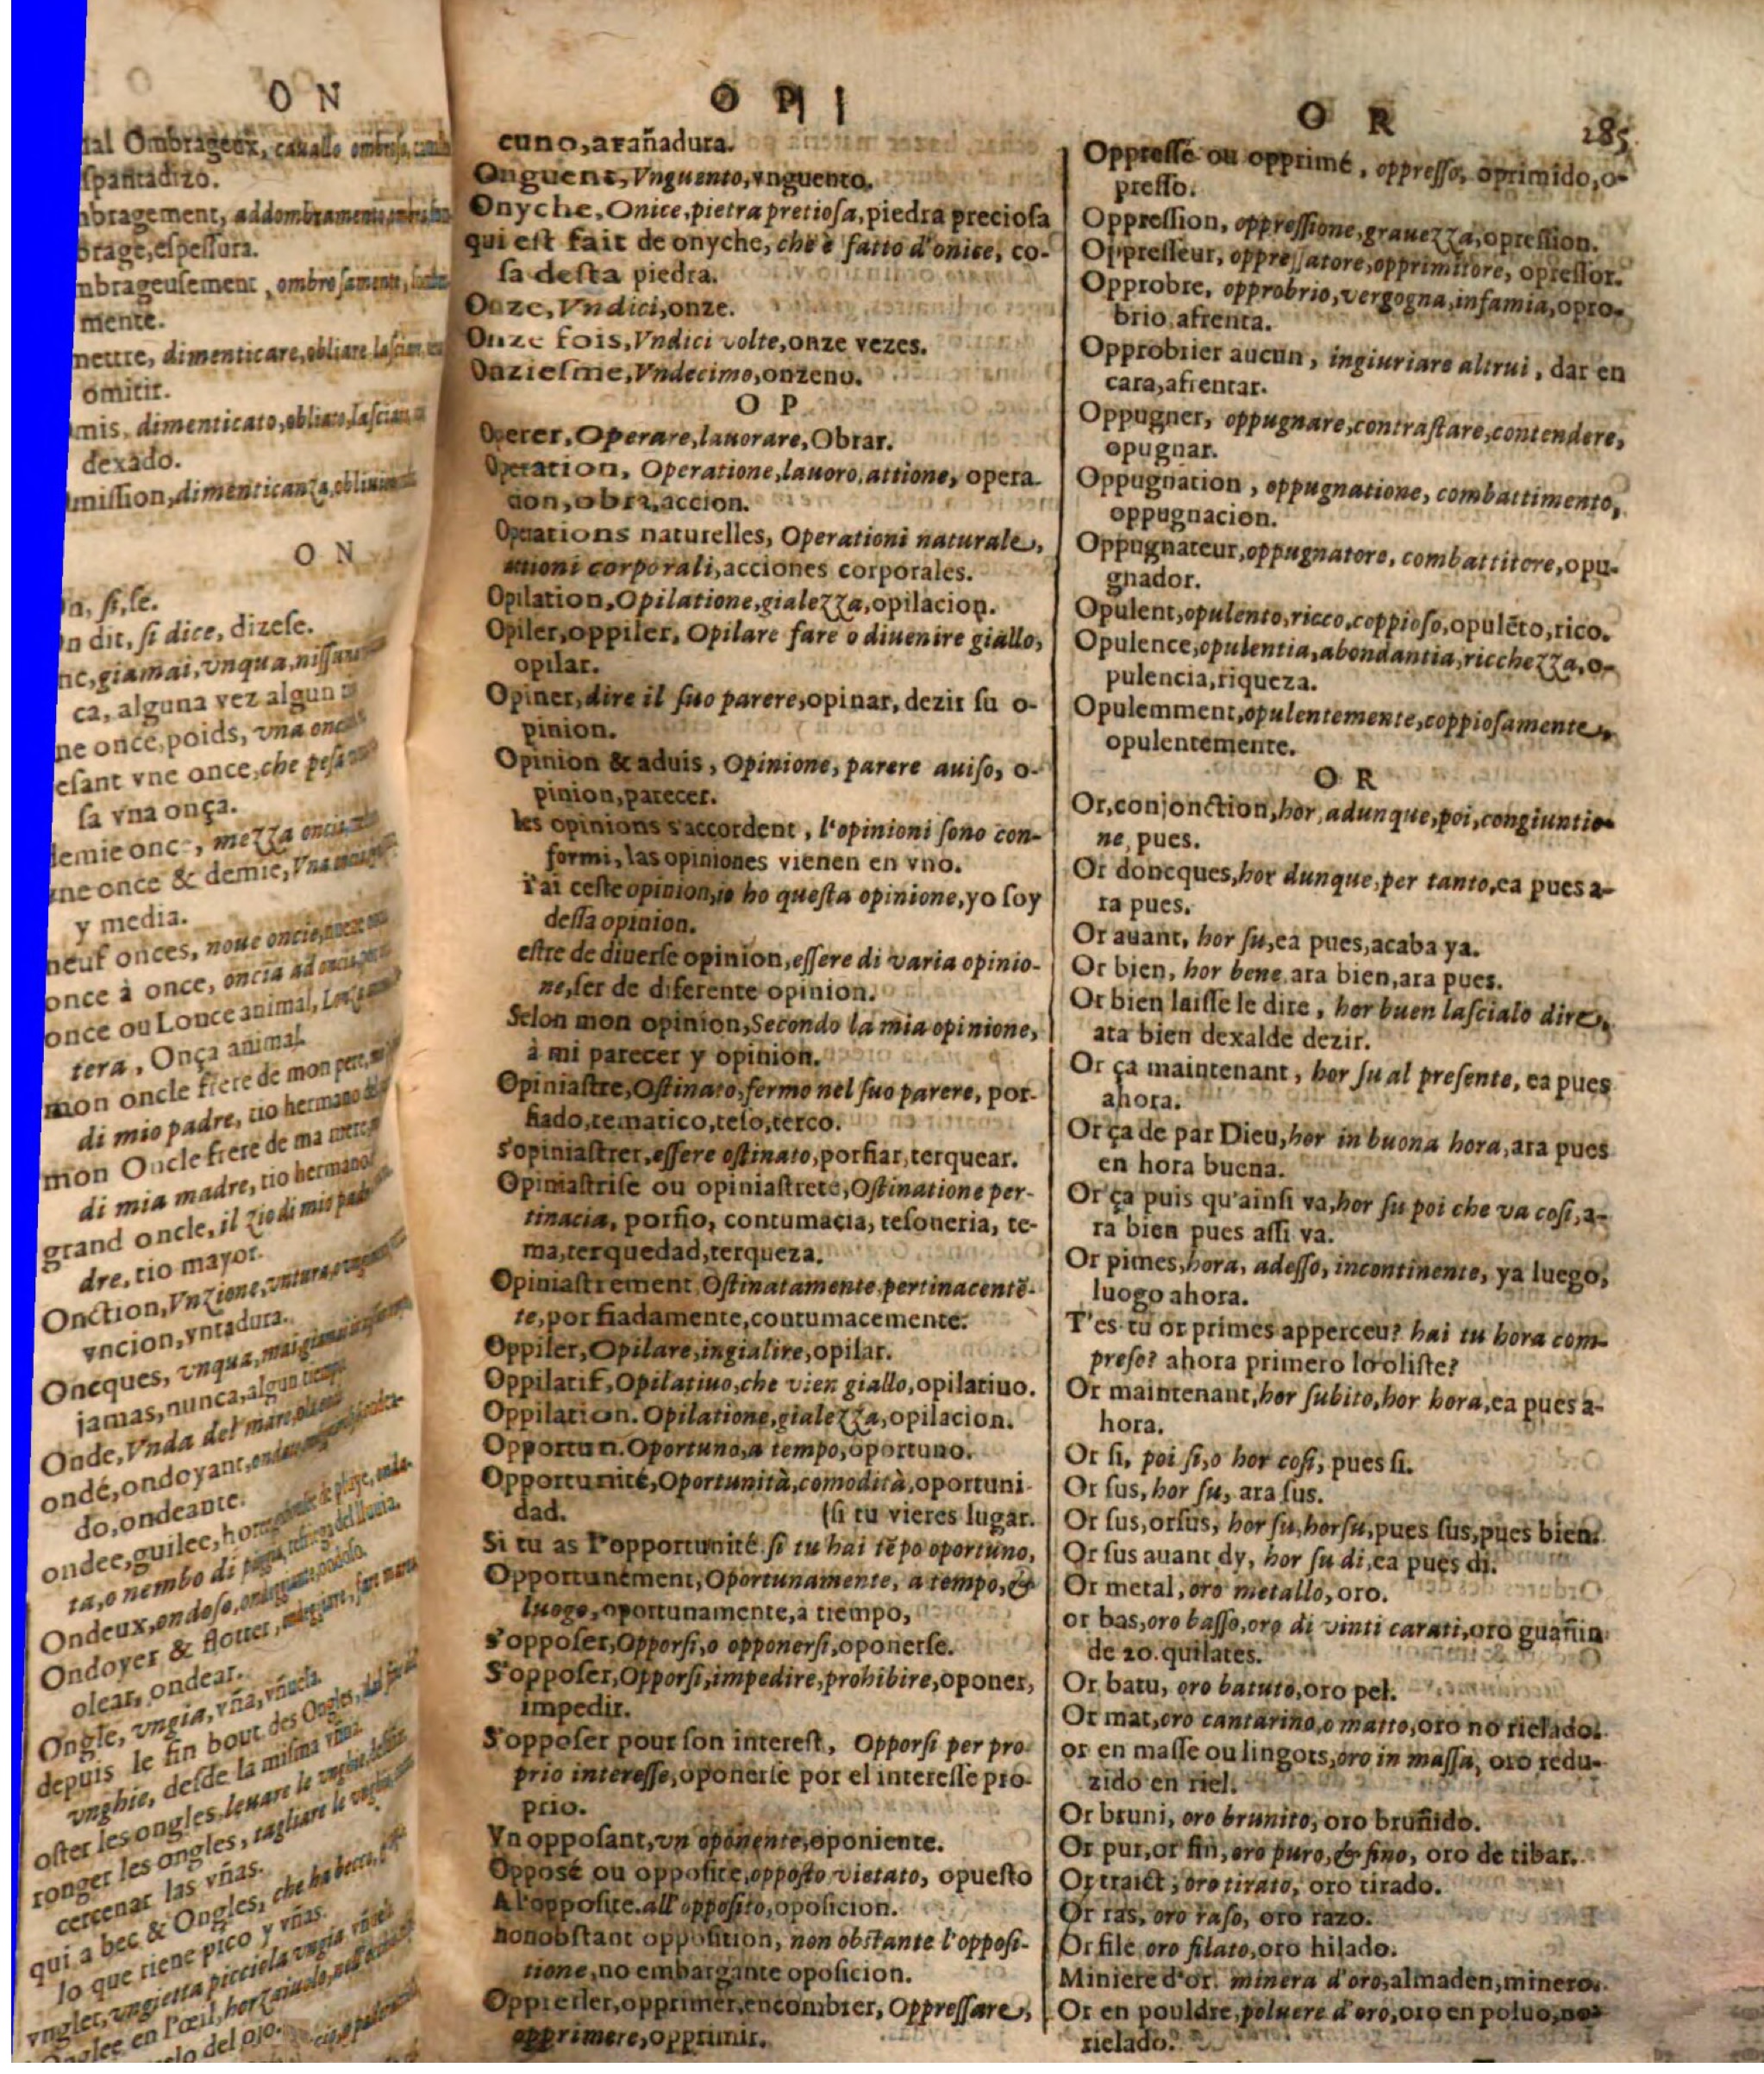 O N
tal Ombrageux, cauallo
ſpantadizo.
nbragement, addombramento,
brage,eſpeſſura.
nbrageuſement, ombroſamente,
mente.
mettre, dimenticare,obliare
omitir.
mis, dimenticato,obliato,laſciato
dexado.
miſſion,dimenticanza,
O N
n, ſi,ſe.
n dit, ſi dice, dizeſe.
nc,giamai,vnqua,
ca, alguna vez algun
ne once,poids, vna
eſant vne once,che peſa
ſa vna onça.
demie onc-, mezza
vne once & demie,Vna
y media.
neuf onces, noue oncie,
once à once, oncia ad
once ou Lonce animal,
tera, Onça animal.
mon oncle frere de mon pere,
di mio padre, tio hermano
mon Oncle frere de ma mere,
di mia madre, tio hermano
grand oncle, il zio di mio
dre, tio mayor.
Onction,Vnzione,vntura,
vncion,vntadura.
Oncques, vnqua,mai,
jamas,nunca,algun tiempo
Onde,Vnda del mare,
ondé,ondoyant,
do,ondeante.
ondee,guilee,
ta,o nembo di
Ondeux,ondoſo,
Ondoyer & flotter,
olear, ondear.
Ongle,vngia,vña,vñuela.
depuis le fin bout des Ongles,
vnghie, deſde la miſma vña.
oſter les ongles,leuare le
ronger les ongles, tagliare le
cercenar las vñas.
qui a bec & Ongles, che ha becco,
lo que tiene pico y vñas.
vnglet,vngietta picciola vngia
Onglee en l'œil,
del ojo.
O P I
cuno,arañadura.
Onguent,Vnguento,vnguento.
Onyche,Onice,pietra pretioſa,piedra precioſa
qui eſt fait de onyche,che è fatto d'onice, co-
ſa deſta piedra.
Onze,Vndici,onze.
Onze fois,Vndici volte,onze vezes.
Onzieſme,Vndecimo,onzeno.
O P
Operer,Operare,lauorare,Obrar.
Operation, Operatione,lauoro,attione, opera
cion,obra,accion.
Operations naturelles, Operationi naturale,
attioni corporali,acciones corporales.
Opilation,Opilatione,gialezza,opilacion.
Opiler,oppiler, Opilare fare o diuenire giallo,
opilar.
Opiner,dire il ſuo parere,opinar, dezir ſu o-
pinion.
Opinion & aduis, Opinione, parere auiſo, o-
pinion,parecer.
les opinions s'accordent, l'opinioni ſono con-
formi,las opiniones vienen en vno.
i'ai ceſte opinion,io ho queſta opinione,yo ſoy
deſſa opinion.
eſtre de diuerſe opinion,eſſere di varia opinio-
ne,ſer de diferente opinion.
Selon mon opinion,Secondo la mia opinione,
à mi parecer y opinion.
Opiniaſtre,Oſtinato,fermo nel ſuo parere, por-
fiado,tematico,teſo,terco.
s'opiniaſtrer,eſſere oſtinato,porfiar,terquear.
Opiniaſtriſe ou opiniaſtreté,Oſtinatione per-
tinacia, porfio, contumacia, teſoneria, te-
ma,terquedad,terqueza.
Opiniaſtrement Oſtinatamente pertinacentē-
te,porfiadamente,contumacemente.
Oppiler,Opilare,ingialire,opilar.
Oppilatif,Opilatiuo,che vien giallo,opilatiuo.
Oppilation. Opilatione,gialezza,opilacion.
Opportun.Oportuno,a tempo,oportuno.
Opportunité,Oportunità,comodità,oportuni-
dad. (ſi tu vieres lugar.
Si tu as l'opportunité ſi tu hai tēpo oportuno,
Opportunément,Oportunamente, a tempo,&
luogo,oportunamente,a tiempo,
s'oppoſer,Opporſi,o opponerſi,oponerſe.
S'oppoſer,Opporſi,impedire,prohibire,oponer,
impedir.
S'oppoſer pour ſon intereſt, Opporſi per pro-
prio intereſſe,oponerſe por el intereſſe pro-
prio.
Vn oppoſant,vn oponente,oponiente.
Opposé ou oppoſite,oppoſto vietato, opuesto
A l'oppoſite.all'oppoſito,opoſicion.
nonobſtant oppoſition, non obſtante l'oppoſi-
tione,no embargante opoſicion.
Oppreſſer,opprimer,encombrer, Oppreſſare,
opprimere,opprimir.
O R
285
Oppreſſé ou opprimé, oppreſſo, oprimido,o-
preſſo.
Oppreſſion, oppreſſione,grauezza,opreſſion.
Oppreſſeur, oppreſſatore,opprimitore, opreſſor.
Opprobre, opprobrio,vergogna,infamia,opro-
brio,afrenta.
Opprobrier aucun, ingiuriare altrui, dar en
cara,afrentar.
Oppugner, oppugnare,contraſtare,contendere,
opugnar.
Oppugnation, oppugnatione, combattimento,
oppugnacion.
Oppugnateur,oppugnatore, combattitore,opu-
gnador.
Opulent,opulento,ricco,coppioſo,opulēto,rico.
Opulence,opulentia,abondantia,ricchezza,o-
pulencia,riqueza.
Opulemment,opulentemente,coppioſamente,
opulentemente.
O R
Or,conjonction,hor,adunque,poi,congiuntio-
ne, pues.
Or doncques,hor dunque,per tanto,ea pues a-
ra pues.
Or auant, hor ſu,ea pues,acaba ya.
Or bien, hor bene,ara bien,ara pues.
Or bien laiſſe le dire, hor buen laſcialo dire,
ara bien dexalde dezir.
Or ça maintenant, hor ſu al preſente, ea pues
ahora.
Or ça de par Dieu,hor in buona hora,ara pues
en hora buena.
Or ça puis qu'ainſi va,hor ſu poi che va coſi,a-
ra bien pues aſſi va.
Or pimes,hora, adeſſo, incontinente, ya luego,
luogo ahora.
T'es tu or primes apperceu? hai tu hora com-
preſo? ahora primero lo oliſte?
Or maintenant,hor ſubito,hor hora,ea pues a-
hora.
Or ſi, poi ſi,o hor coſi, pues ſi.
Or ſus, hor ſu, ara ſus.
Or ſus,orſus, hor ſu,horſu,pues ſus,pues bien.
Or ſus auant dy, hor ſu di,ea pues di.
Or metal, oro metallo, oro.
or bas,oro baſſo,oro di vinti carati,oro guañin
de 20.quilates.
Or batu, oro batuto,oro pel.
Or mat,oro cantarino,o matto,oro no rielado.
or en maſſe ou lingots,oro in maſſa, oro redu-
zido en riel.
Or bruni, oro brunito, oro bruñido.
Or pur,or fin, oro puro,& fino, oro de tibar.
Or traict, oro tirato, oro tirado.
Or ras, oro raſo, oro razo.
Or file oro filato,oro hilado.
Miniere d'or. minera d'oro,almaden,minero.
Or en pouldre,poluere d'oro,oro en poluo,no
rielado.